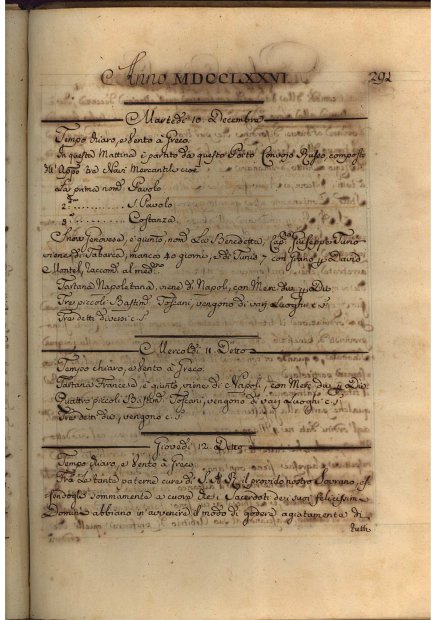 Anno MDCCLXXVI 291
Martedì 10. Decembre
Tempo chiaro, e Vento à Greco.
In questa Mattina è partito da questo Porto Convojo Russo, composto
di Navi Mercantili cioè
La prima nom. Pavolo
2.ª .......... S. Pavolo
3.ª .......... Costanza.
Snow Genovese, è giunto, nom. La Benedetta, Cap. Giuseppe
viene di Tabarca, manca 40 giorni, e di Tunis 7 con Grano
Montel, raccom. al med.mo
Tartana Napoletana, viene di Napoli, con Merc. div. p. Div.
Tre piccoli Bastim. Toscani, vengono di varj Luoghi c. S.
Tre detti diversi c. S.
Mercoldì 11 Detto
Tempo chiaro, e Vento à Greco.
Tartana Francese è giunta, viene di Napoli, con Merc. div. p. Div.
Quattro piccoli Bastim. Toscani, vengono di varj Luoghi c. S.
Tre detti div. vengono c. S.
Giovedì 12. Detto
Tempo chiaro, e Vento à Greco.
Frà le tante paterne cure di S. A. R. il provido nostro Sovrano, es-
sendogli sommamente a cuore che i Sacerdoti dei suoi felicissimi
Dominj abbiano in avvenire il modo di godere agiatamente di
tutti